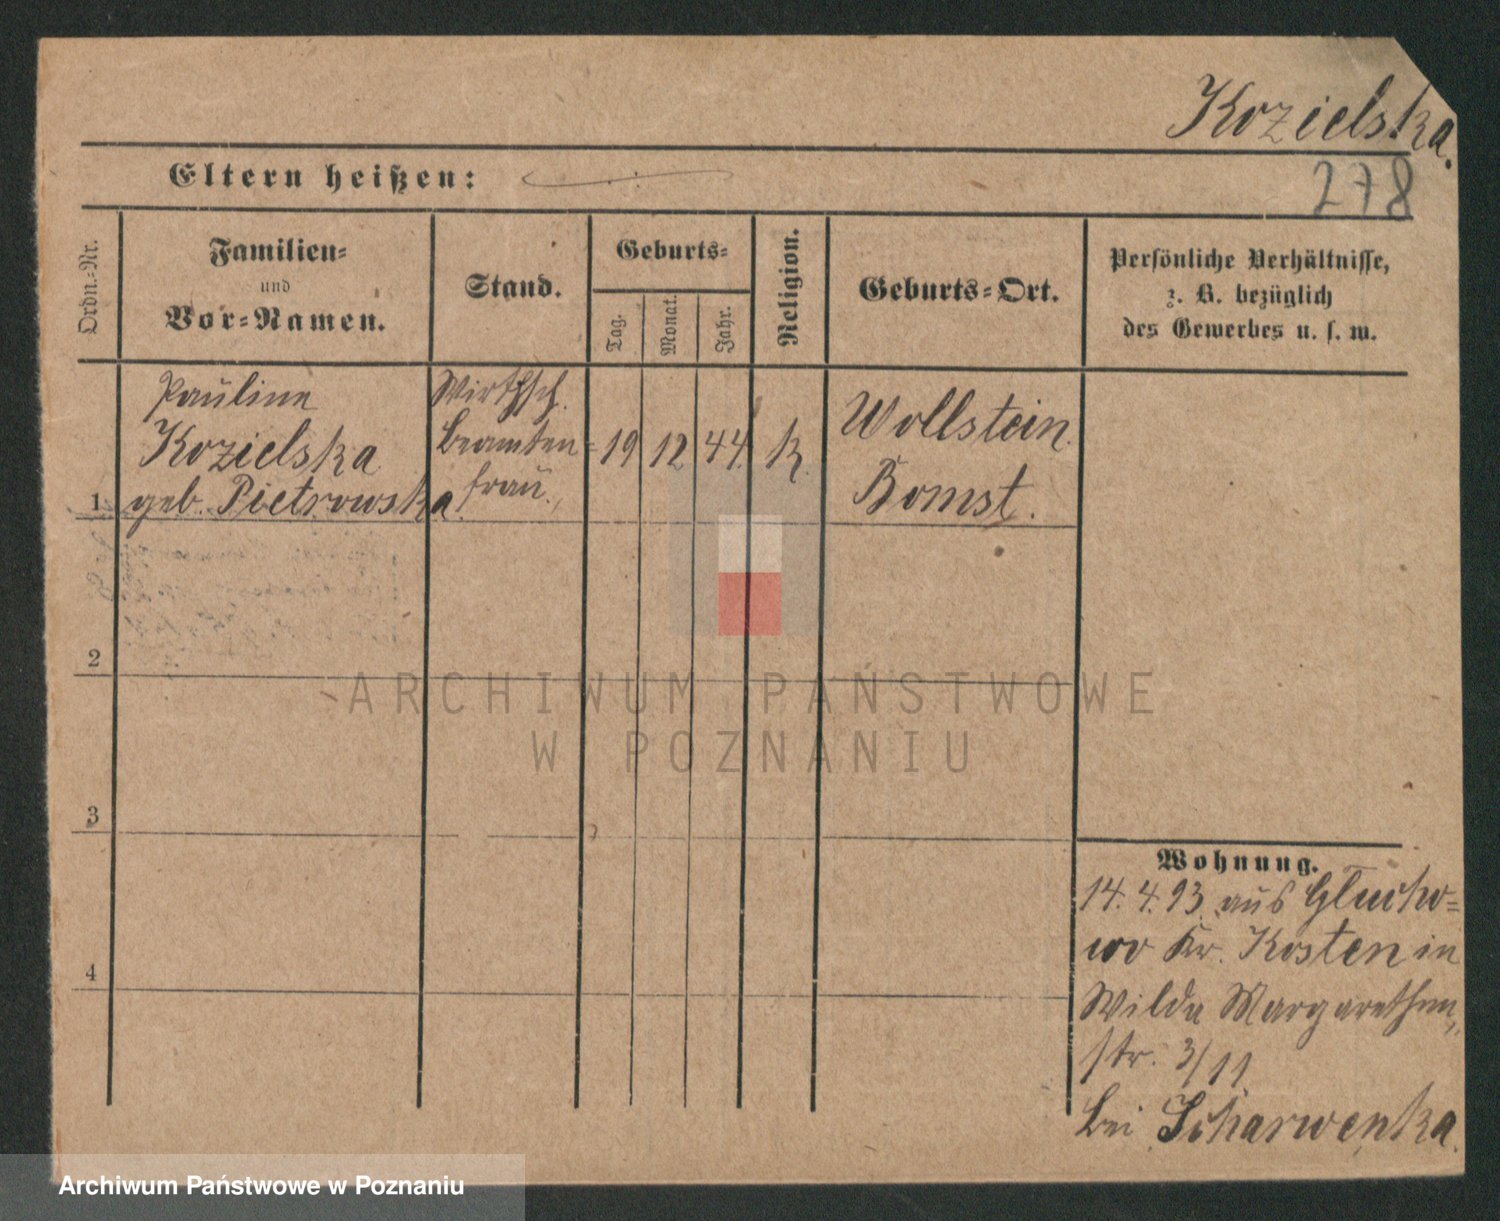 Kozielska.
278
Eltern heißen:
Ordn.-Nr.
Familien-
und
Vor-Namen.
Stand.
Geburts-
Tag.
Monat.
Jahr.
Religion.
Geburts-Ort.
Persönliche Verhältnisse,
z. B. bezüglich
des Gewerbes u. s. w.
1
Pauline
Kozielska
geb. Pietrowska.
Wirthsch.
Beamten-
frau.
19
12
44.
k.
Wollstein.
Bomst.
2
3
4
Wohnung.
14.4.93. aus Glucho-
wo Kr. Kosten in
Wilda Margarethen
str. 3/11
bei Scharwenka.
ARCHIWUM PAŃSTWOWE
W POZNANIU
Archiwum Państwowe w Poznaniu